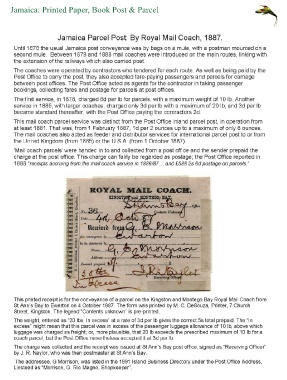 Jamaica: Printed Paper, Book Post & Parcel
Jamaica Parcel Post By Royal Mail Coach, 1887.
Until 1878 the usual Jamaica post conveyance was by bags on a mule, with a postman mounted on a
second mule. Between 1878 and 1888 mail coaches were introduced on the main routes, linking with
the extension of the railways which also carried post
The coaches were operated by contractors who tendered for each route. As well as being paid by the
Post Office to carry the post, they also accepted fare-paying passengers and parcels for carriage
between post offices. The Post Office acted as agents for the contractor in taking passenger
bookings, collecting fares and postage for parcels at post offices
The first service, in 1878, charged 6d per lb for parcels, with a maximum weight of 10 lb. Another
service in 1886, with larger coaches, charged only 3d per lb with a maximum of 20 lb, and 3d per lb
became standard thereafter, with the Post Office paying the contractors 2d.
This mail coach parcel service was distinct from the Post Office inland parcel post, in operation from
at least 1881. That was, from 1 February 1887, 1d per 2 ounces up to a maximum of only 8 ounces.
The mail coaches also acted as feeder and distributor services for international parcel post to or from
the United Kingdom (from 1885) or the U.S.A. (from 1 October 1887).
Mail coach parcels were handed in to and collected from a post office and the sender prepaid the
charge at the post office. This charge can fairly be regarded as postage; the Post Office reported in
1888 "receipts accruing from the mail coach service in 1886/87 ... and £585 2s 6d postage on parcels."
ROYAL MAIL COACH.
KINGSTON and MONTEGO BAY
St Ann's Bay
No. 36
4th Oct 87
Received from G. E. Morrison
Ewarton
G. E. Morrison
Ewarton
J R Naylor
This printed receipt is for the conveyance of a parcel on the Kingston and Montego Bay Royal Mail Coach from
St Ann's Bay to Ewarton on 4 October 1887. The form was printed by M. C. DeSouza, Printer, 7 Church
Street, Kingston. The legend "Contents unknown" is pre-printed.
The weight, entered as "20 lbs. in excess" at a rate of 3d per lb gives the correct 5s total prepaid. The "in
excess" might mean that this parcel was in excess of the passenger luggage allowance of 10 lb, above which
luggage was charged as freight; or, more plausible, that 20 lb exceeds the prescribed maximum of 10 lb for a
coach parcel, but the Post Office nevertheless accepted it at 3d per lb.
The charge was collected and the receipt was issued at St Ann's Bay post office, signed as "Receiving Officer"
by J. R. Naylor, who was then postmaster at St Ann's Bay.
The addressee, G Morrison, was listed in the 1891 Island Business Directory under the Post Office Address,
Linstead as "Morrison, G. Rio Magno, Shopkeeper".